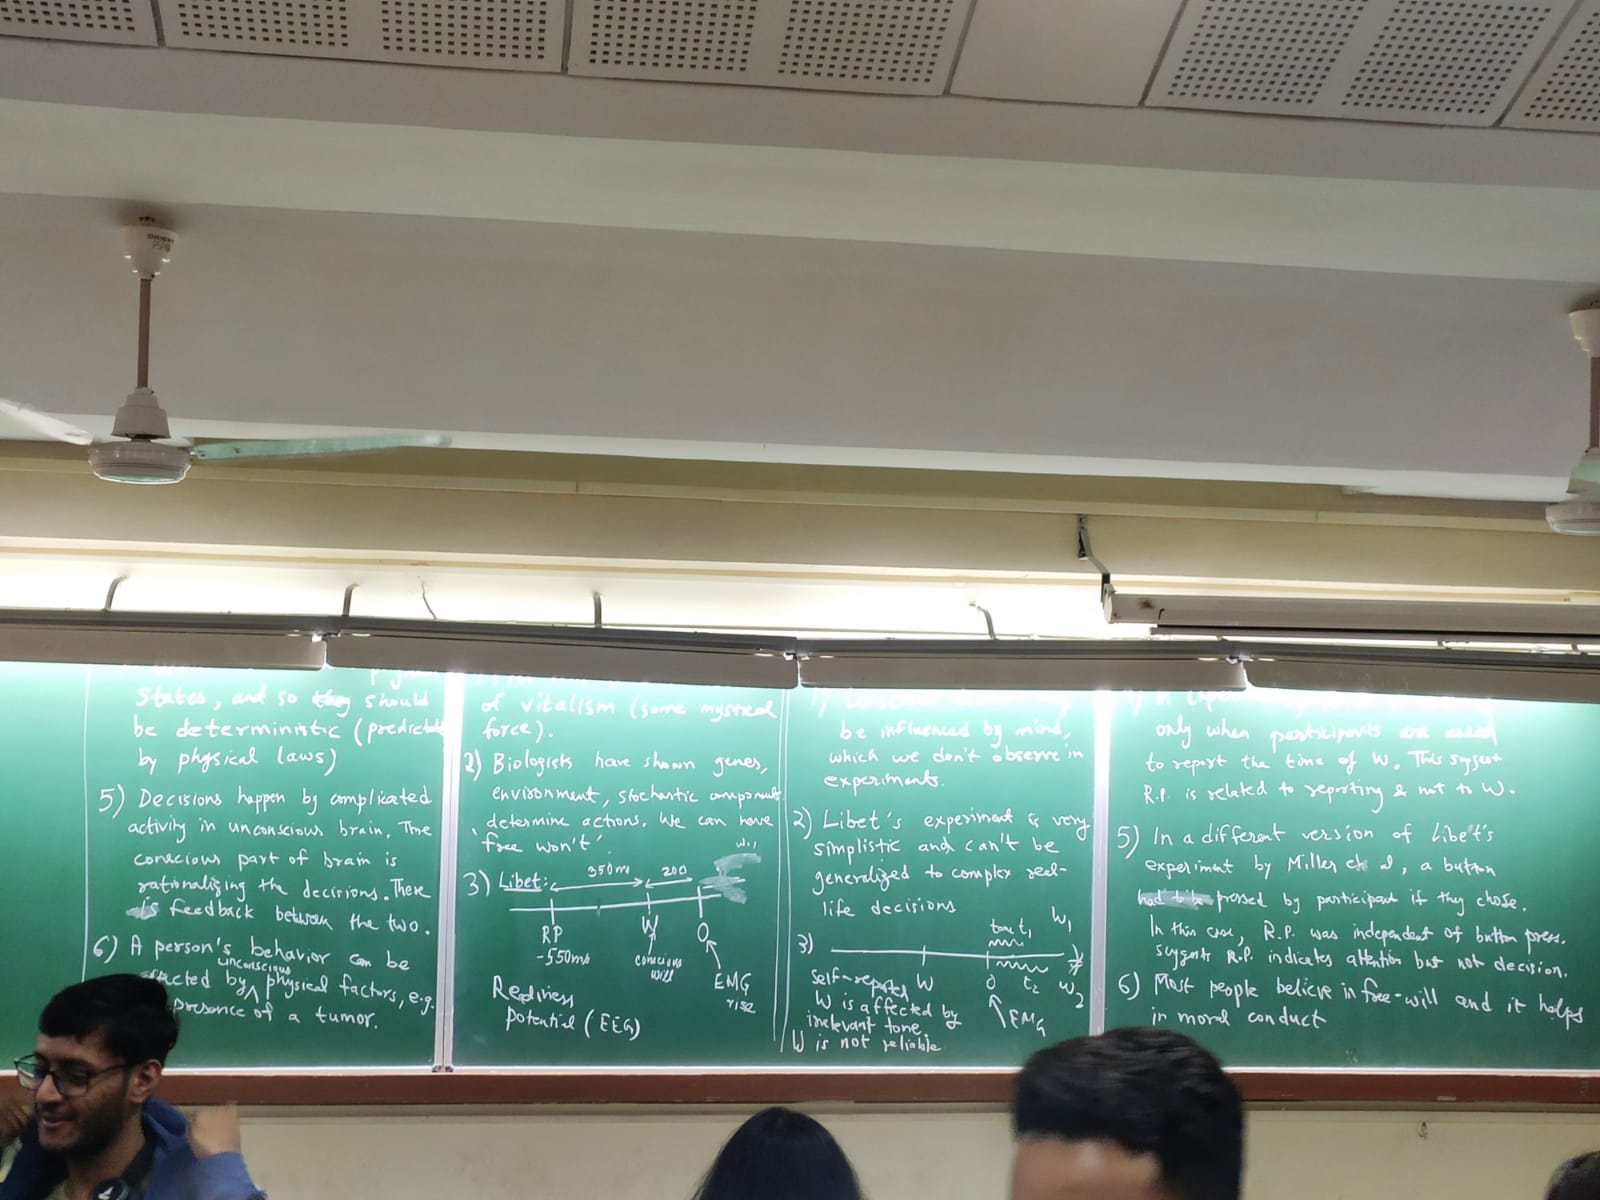 States, and so they should
be deterministic (predictable
by physical laws)
5) Decisions happen by complicated
activity in unconscious brain. The
conscious part of brain is
rationalizing the decisions. There
is feedback between the two.
6) A person's behavior can be
unconscious
by physical factors, e.g.
presence of a tumor.
of vitalism (some mystical
force).
2) Biologists have shown genes,
environment, stochastic components
determine actions. We can have
'free won't'.
3) Libet:
350ms
200
RP
-550ms
W
conscious
will
O
EMG
rise
Readiness
Potential (EEG)
1)
be influenced by mind,
which we don't observe in
experiments.
2) Libet's experiment is very
simplistic and can't be
generalized to complex real-
life decisions
3)
tone t1
W1
W
O
t2
W2
EMG
self-reported
W is affected by
irrelevant tone.
W is not reliable
only when participants are asked
to report the time of W. This suggest
R.P. is related to reporting & not to W.
5) In a different version of Libet's
experiment by Miller et al, a button
had to be pressed by participant if they chose.
In this case, R.P. was independent of button press.
suggests R.P. indicates attention but not decision.
6) Most people believe in free-will and it helps
in moral conduct